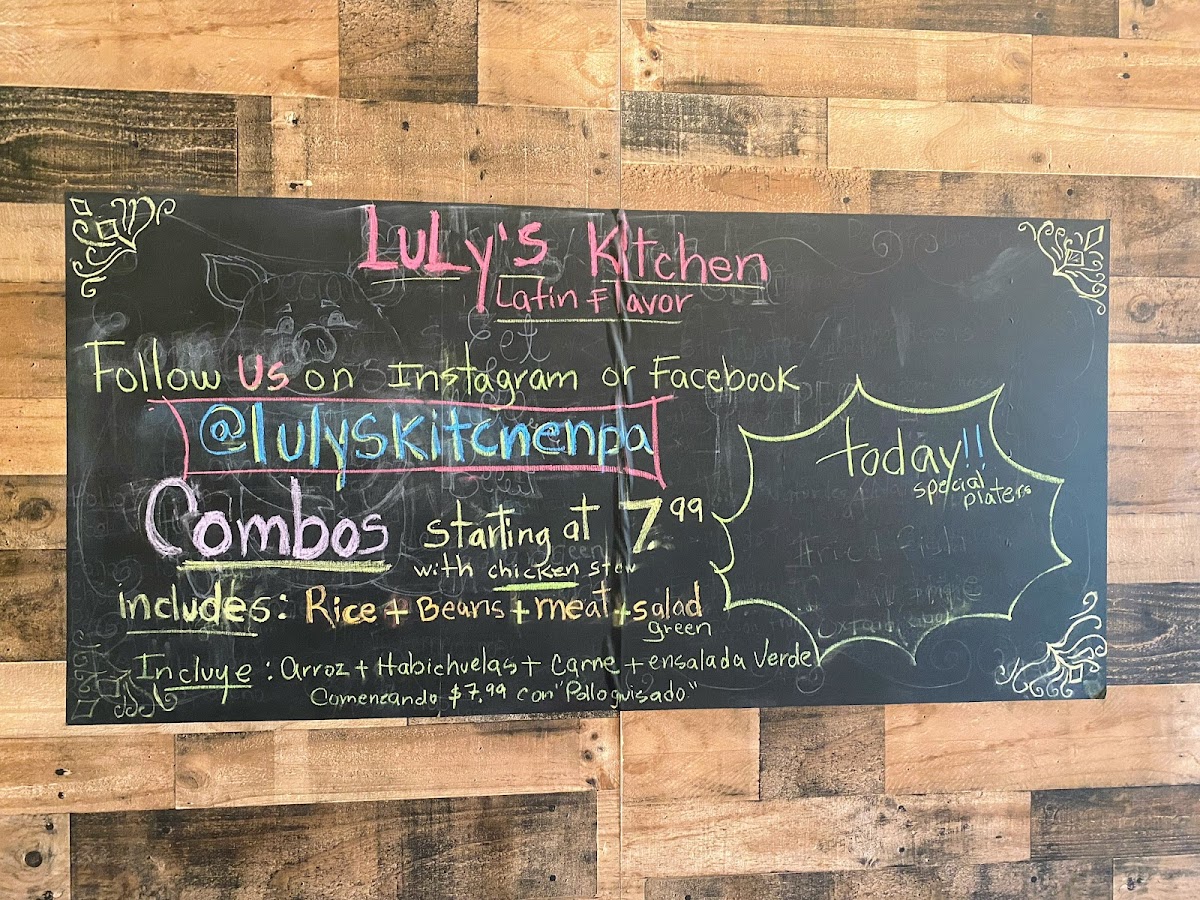 LuLy's Kitchen
Latin Flavor
Follow us on Instagram or Facebook
@lulyskitchenpa
Combos starting at 7.99
with chicken stew
includes: Rice + Beans + meat + salad
green
Incluye : arroz + Habichuelas + carne + ensalada Verde
Comenzando $7.99 con "Polloguisado"
today!!
special
platers
fried fish